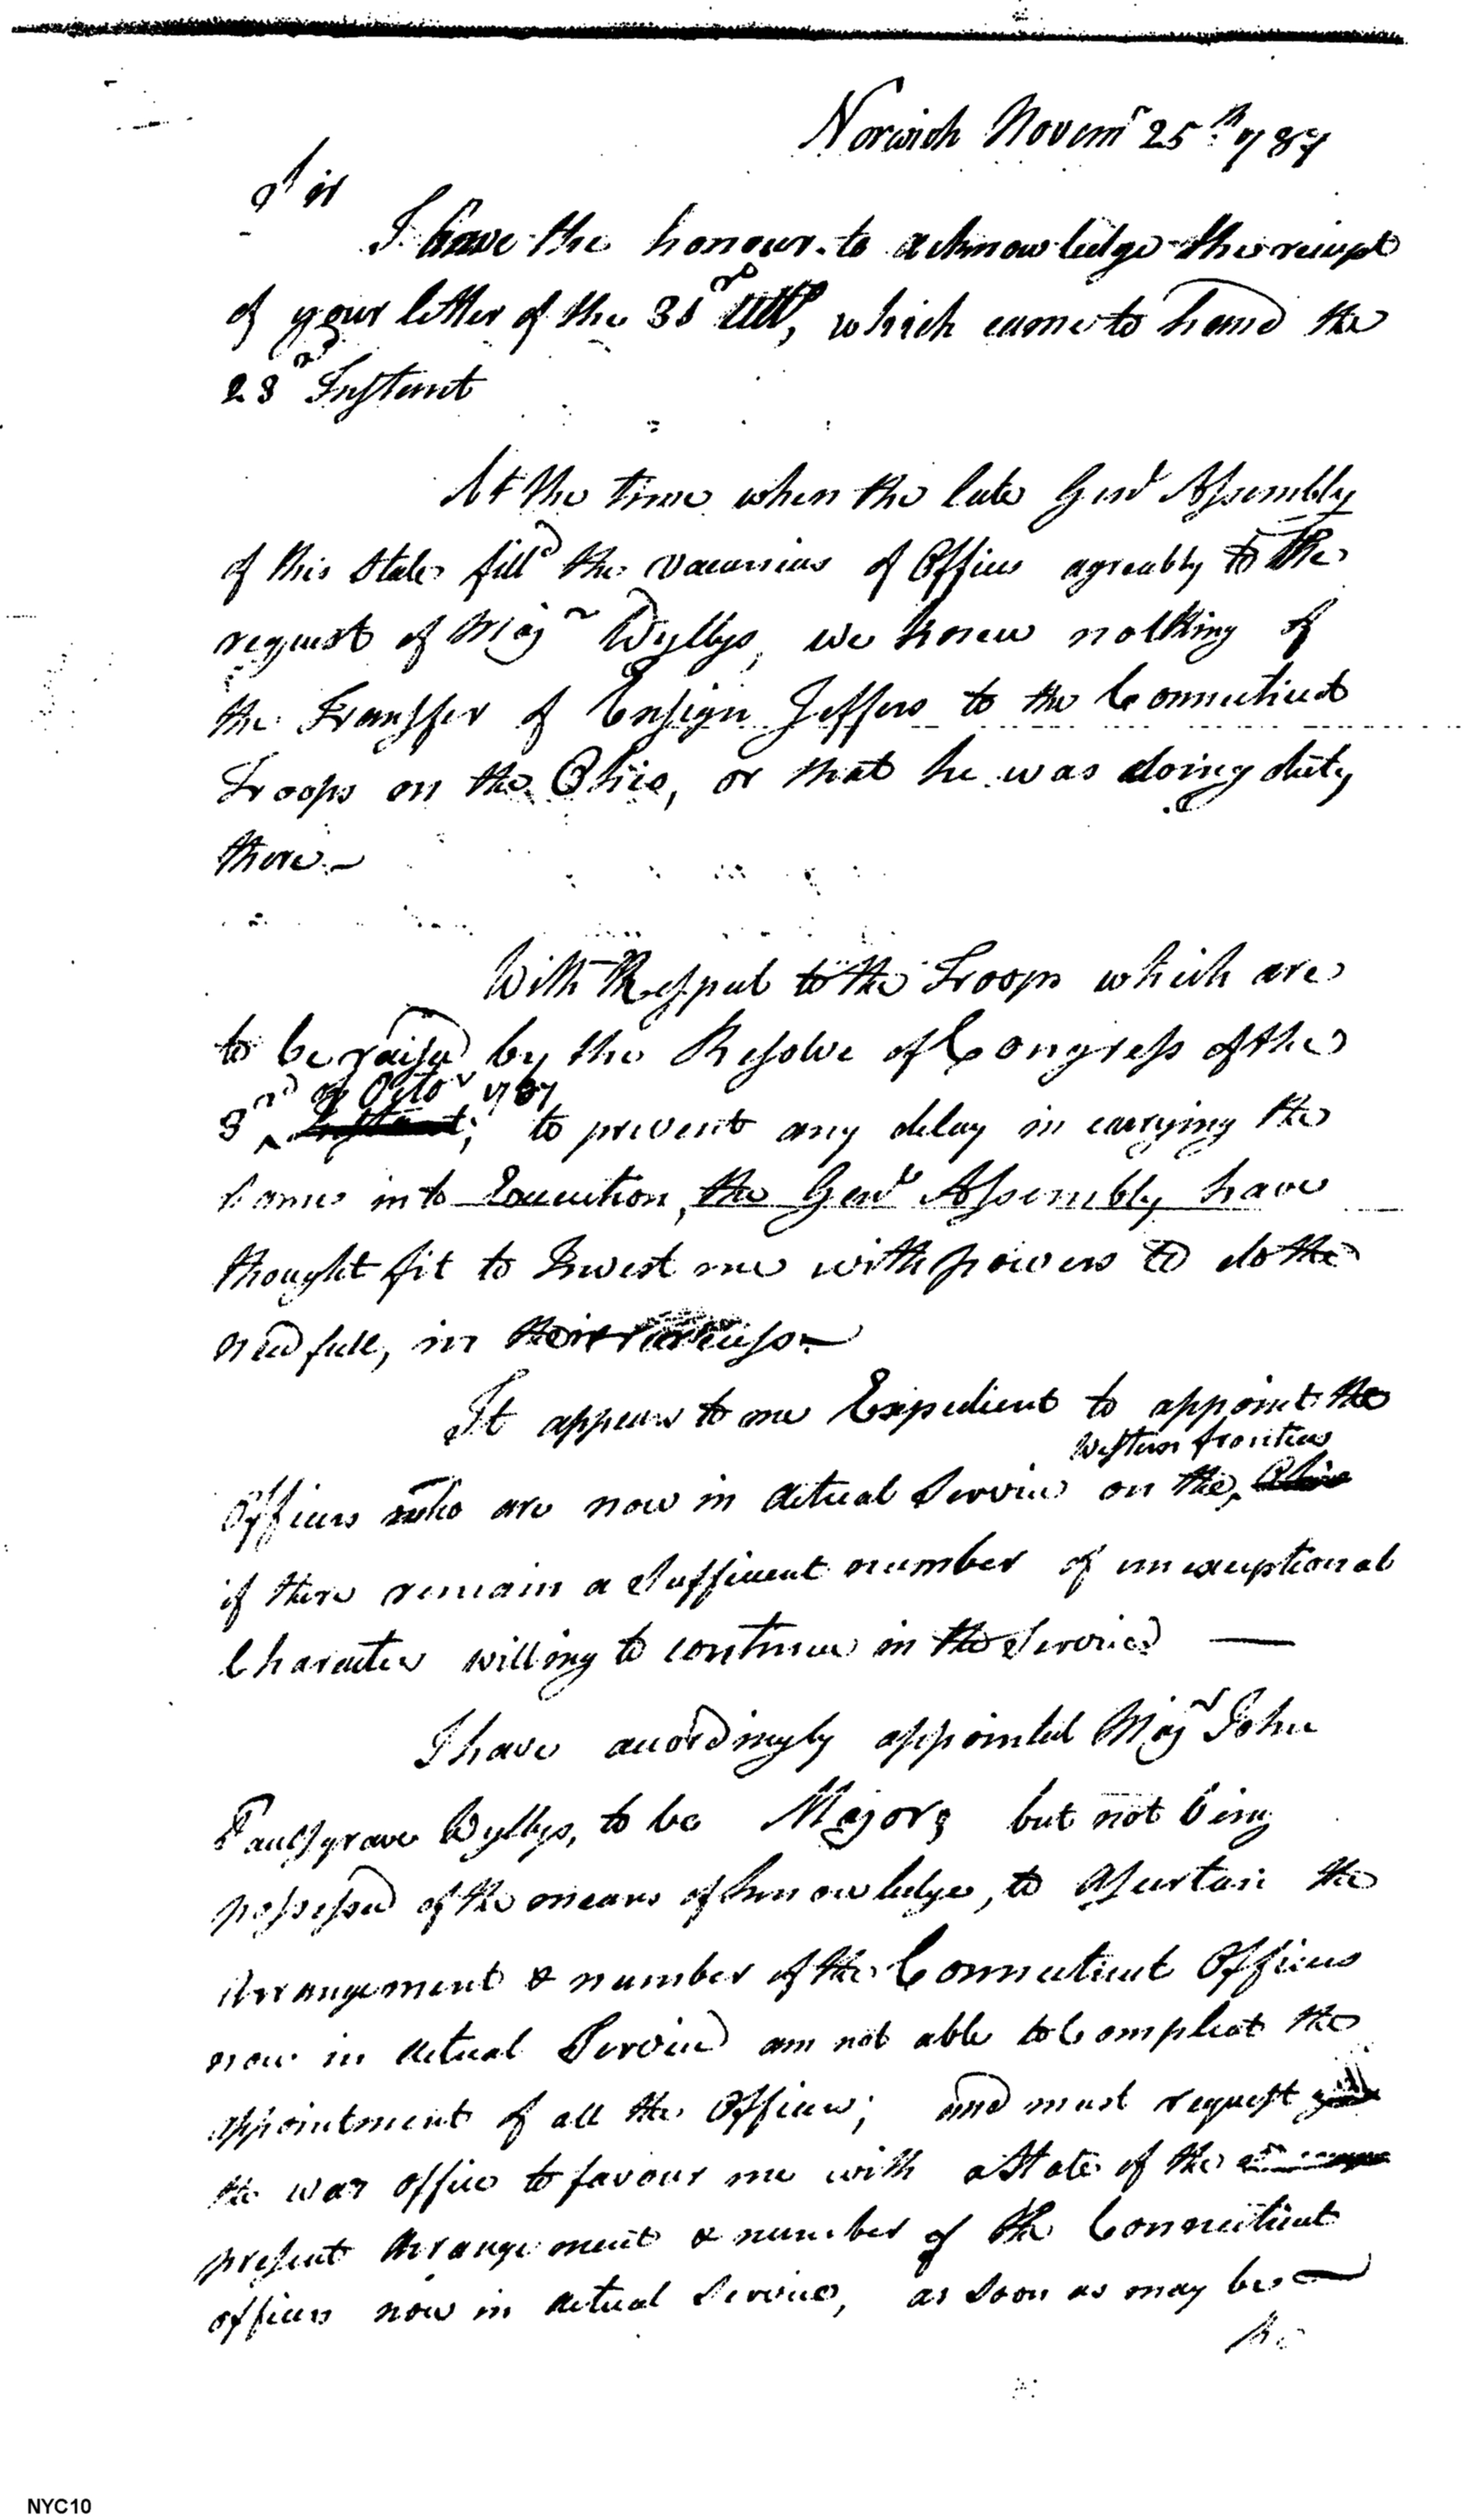 Norwich Novemr 25th 1787
Sir
I have the honour to acknowledge the reciept
of your letter of the which came to hand the
23rd Instant
At the time when the late Genl Assembly
of this State filld the vacancies of Offices agreably to the
request of Majr Wyllys, we knew nothing of
the Transfer of Ensign Jeffers to the Connecticut
Troops on the Ohio, or that he was doing duty
there.—
With Respect to the Troops which are
to be raised by the Resolve of Congress of the
3rd of Octor 1787 Instant; to prevent any delay in carrying the
Same into Execution, the Genl Assembly have
thought fit to Invest me with powers to do the
needfull, in their recess.—
It appears to me Expedient to appoint the
western frontiers
Officers who are now in actual Service on the Ohio
if there remain a Sufficient number of unexceptional
Character willing to continue in the Service —
I have accordingly appointed Majr John
Paulsgrave Wyllys, to be Major; but not being
possessed of the means of knowledge, to Assertain the
Arrangement & number of the Connecticut Officers
now in actual Service am not able to Compleat the
appointment of all the Officers; and must request
the war office to favour me with a State of the
present Arrangement & number of the Connecticut
officers now in actual Service, as Soon as may be —
NYC10